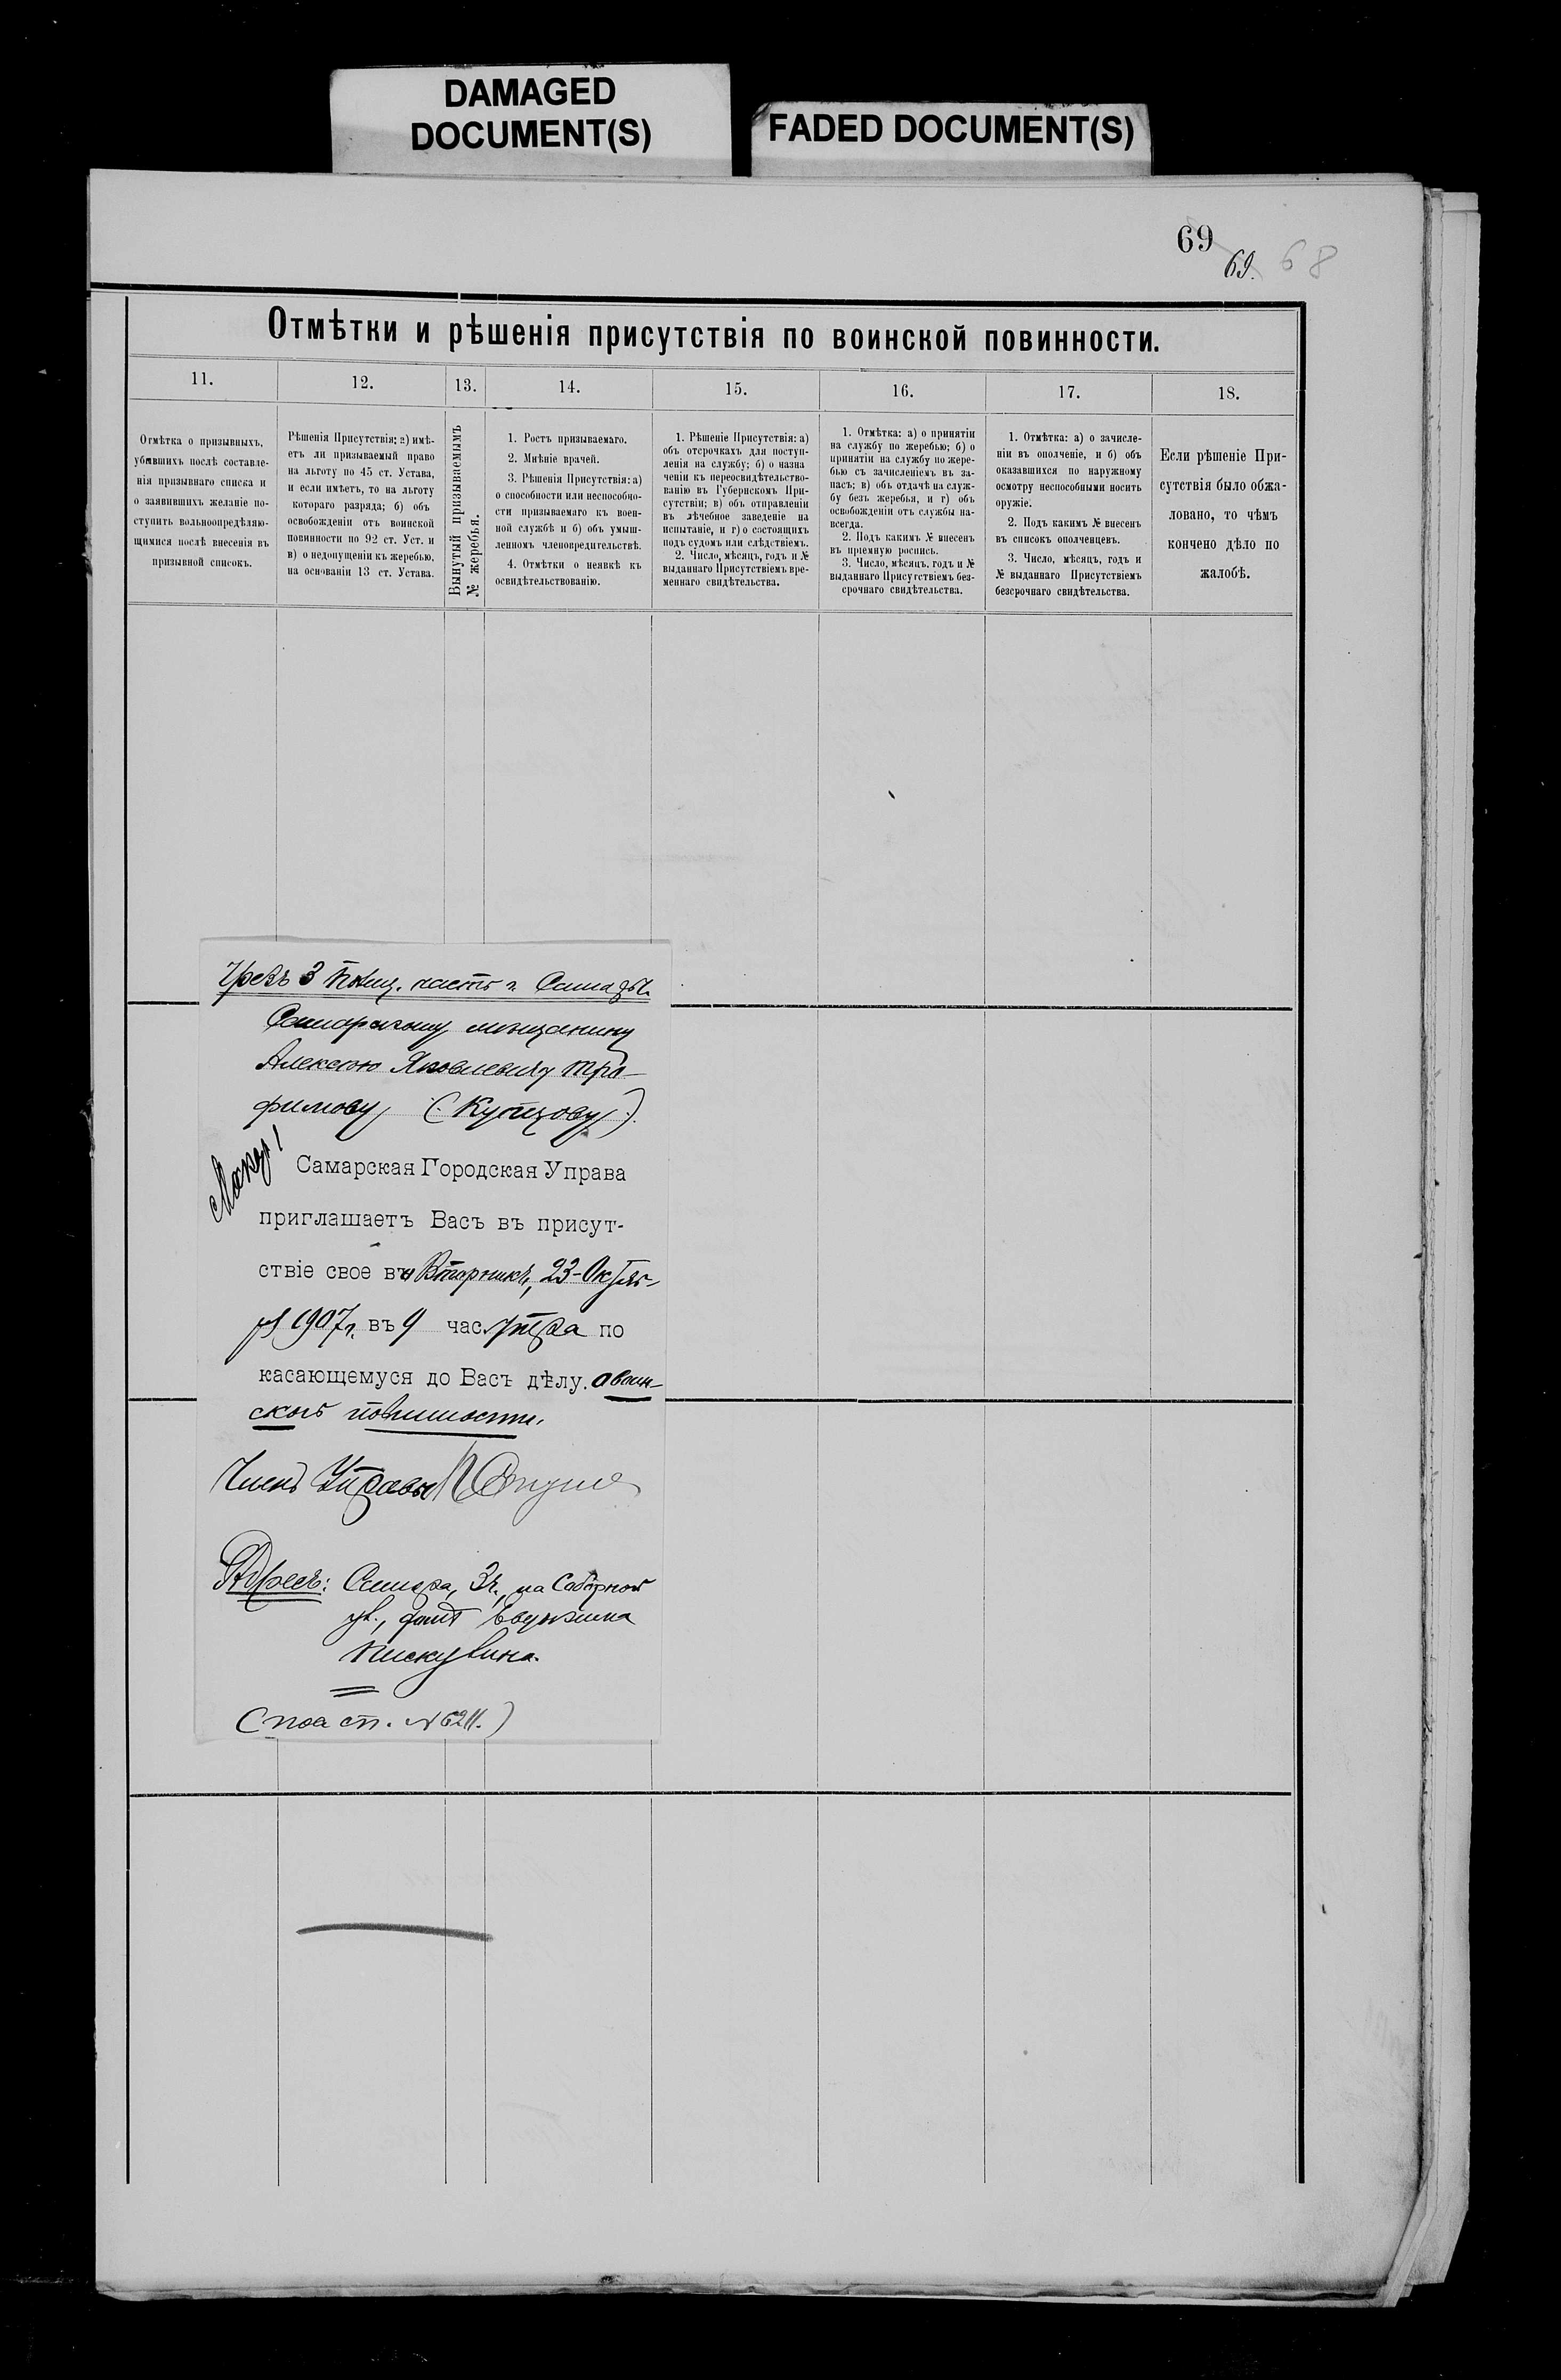 DAMAGED
DOCUMENT(S)
FADED DOCUMENT(S)
69
69. 68
Отмѣтки и рѣшенія присутствія по воинской повинности.
11.
12.
13.
14.
15.
16.
17.
18.
Отмѣтка о призывныхъ,
убывшихъ послѣ составле-
нія призывнаго списка и
о заявившихъ желаніе по-
ступить вольноопредѣляю-
щимися послѣ внесенія въ
призывной списокъ.
Рѣшенія Присутствія: а) имѣ-
етъ ли призываемый право
на льготу по 45 ст. Устава,
и если имѣетъ, то на льготу
котораго разряда; б) объ
освобожденіи отъ воинской
повинности по 92 ст. Уст. и
в) о недопущеніи къ жеребью,
на основаніи 13 ст. Устава.
Вынутый призываемымъ
№ жеребья.
1. Ростъ призываемаго.
2. Мнѣніе врачей.
3. Рѣшенія Присутствія: а)
о способности или неспособно-
сти призываемаго къ воен-
ной службѣ и б) объ умыш-
ленномъ членовредительствѣ.
4. Отмѣтки о неявкѣ къ
освидѣтельствованію.
1. Рѣшеніе Присутствія: а)
объ отсрочкахъ для поступ-
ленія на службу; б) о назна
ченіи къ переосвидѣтельство-
ванію въ Губернскомъ При-
сутствіи; в) объ отправленіи
въ лѣчебное заведеніе на
испытаніе, и г) о состоящихъ
подъ судомъ или слѣдствіемъ.
2. Число, мѣсяцъ, годъ и №
выданнаго Присутствіемъ вре-
меннаго свидѣтельства.
1. Отмѣтка: а) о принятіи
на службу по жеребью; б) о
принятіи на службу по жере-
бью съ зачисленіемъ въ за-
пасъ; в) объ отдачѣ на служ-
бу безъ жеребья, и г) объ
освобожденіи отъ службы на-
всегда.
2. Подъ какимъ № внесенъ
въ пріемную роспись.
3. Число, мѣсяцъ, годъ и №
выданнаго Присутствіемъ без-
срочнаго свидѣтельства.
1. Отмѣтка: а) о зачисле-
ніи въ ополченіе, и б) объ
оказавшихся по наружному
осмотру неспособными носить
оружіе.
2. Подъ какимъ № внесенъ
въ списокъ ополченцевъ.
3. Число, мѣсяцъ, годъ и
№ выданнаго Присутствіемъ
безсрочнаго свидѣтельства.
Если рѣшеніе При-
сутствія было обжа-
ловано, то чѣмъ
кончено дѣло по
жалобѣ.
Чрезъ 3 Полиц. часть г. Самары.
Самарскому мѣщанину
Алексѣю Яковлевичу Тро-
фимову (Купцову).
Самарская Городская Управа
приглашаетъ Васъ въ присут-
ствіе свое въ Вторникъ, 23-Октяб-
ря 1907 г. въ 9 час. утра по
касающемуся до Васъ дѣлу. о воин-
ской повинности.
Членъ Управы
Адресъ: Самара, 3 ч., на Соборной
ул., домъ
(по а сп. № 6211.)